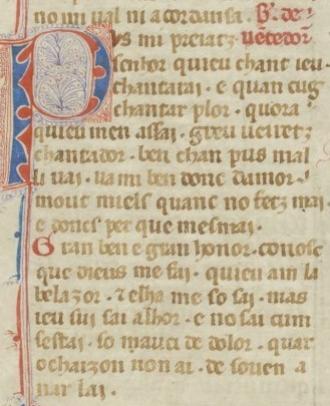 no mi ual ni acordansa. B'. de
Pus mi preiatz uētedor
senhor quieu chant ieu.
chantarai. e quan cug
chantar plor. quora
quieu men assai. greu ueiretz
chantador. ben chan pus mal
li uai. ua mi ben donc damor.
mout miels quanc no fetz mai
e doncs per que mesmai.
Gran ben e gran honor. conosc
que dieus me fai. quieu am la
belazor. ⁊ elha me so sai. mas
ieu sui sai alhor. e no sai cum
sestai. so mauci de dolor. quar
ochaizon non ai. de souen a
nar lai.